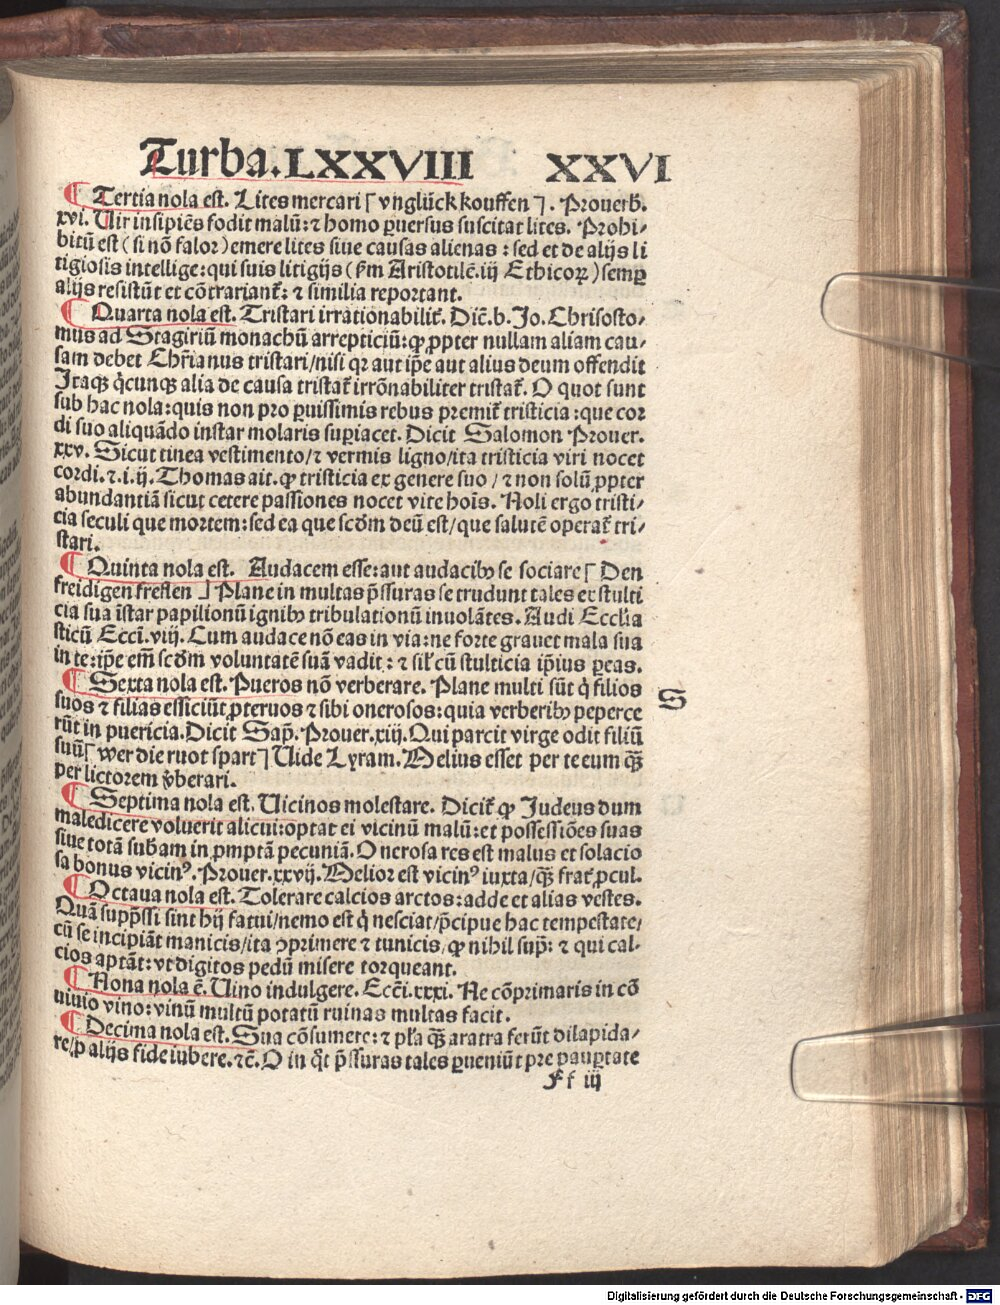 Turba.LXXVIII XXVI
¶ Tertia nola est. Lites mercari ⌈ vnglück kouffen ⌉. Prouerb̄.
xvi. Uir insipiēs fodit malū: ⁊ homo ꝑuersus suscitat lites. Prohi⸗
bitū est ( si nō falor ) emere lites siue causas alienas : sed et de alijs li
tigiosis intellige: qui suis litigijs ( s̄m Aristotilē.iiij Ethicoꝝ ) semꝑ
alijs resistūt et cōtrariant̄: ⁊ similia reportant.
¶ Quarta nola est. Tristari irrationabilit̄. Dic̄.b. Jo. Chrisosto⸗
mus ad Stagiriū monachū arrepticiū: ꝙ ꝓpter nullam aliam cau⸗
sam debet Chr̄ianus tristari/nisi qꝛ aut ip̄e aut alius deum offendit
Itaqꝫ q̇cunqꝫ alia de causa tristat̄ irrōnabiliter tristat̄. O quot sunt
sub hac nola: quis non pro ꝑuissimis rebus premit̄ tristicia : que cor
di suo aliquādo instar molaris suꝑiacet. Dicit Salomon Prouer.
xxv. Sicut tinea vestimento/⁊ vermis ligno/ita tristicia viri nocet
cordi.⁊.i.ij. Thomas ait. ꝙ tristicia ex genere suo / ⁊ non solū ꝓpter
abundantiā sicut cetere passiones nocet vite hoīs. Noli ergo tristi⸗
cia seculi que mortem: sed ea que scdm̄ deū est/que salutē operat̄ tri⸗
stari.
¶ Quinta nola est. Audacem esse: aut audacibꝰ se sociare ⌈ Den
freidigen freflen ⌋ Plane in multas p̄ssuras se trudunt tales ex stulti
cia sua īstar papilionū ignibꝰ tribulationū inuolātes. Audi Ecclīa
sticū Ecci̅.viij. Cum audace nō eas in via: ne forte grauet mala sua
in te: ip̄e em̄ scdm̄ voluntatē suā vadit: ⁊ sil̄ cū stulticia ip̄ius ꝑeas.
¶ Sexta nola est. Pueros nō verberare. Plane multi sūt q̇ filios
suos ⁊ filias efficiūt ꝓteruos ⁊ sibi onerosos: quia verberibꝰ peperce
rūt in puericia. Dicit Sap̄. Prouer.xiij. Qui parcit virge odit filiū
suū ⌈ wer die ruot spart ⌉ Uide Lyram. Melius esset per te eum qꝫ̄
per lictorem v̓berari.
S
¶ Septima nola est. Uicinos molestare. Dicit̄ ꝙ Judeus dum
maledicere voluerit alicui: optat ei vicinū malū: et possessiões suas
siue totā subam in ꝓmptā pecuniā. Onerosa res est malus et solacio
sa bonus vicinꝰ. Prouer.xxvij. Melior est vicinꝰ iuxta/qꝫ̄ frat̄ ꝓcul.
¶ Octaua nola est. Tolerare calcios arctos: adde et alias vestes.
Quā supp̄ssi sint hij fatui/nemo est q̇ nesciat/p̄cipue hac tempestate/
cū se incipiāt manicis/ita ꝯprimere ⁊ tunicis, ꝙ nihil sup̄: ⁊ qui cal⸗
cios aptāt: vt digitos pedū misere torqueant.
¶ Nona nola ē. Uino indulgere. Ecc̄i.xxxi. Ne cōprimaris in cō
uiuio vino: vinū multū potatū ruinas multas facit.
¶ Decima nola est. Sua cōsumere: ⁊ pl̓a qꝫ̄ aratra ferūt dilapida⸗
re/p alijs fide iubere.⁊c̄. O in q̊t p̄ssuras tales ꝑueniūt pre pauꝑtate
Ff iij
Digitalisierung gefördert durch die Deutsche Forschungsgemeinschaft - DFG